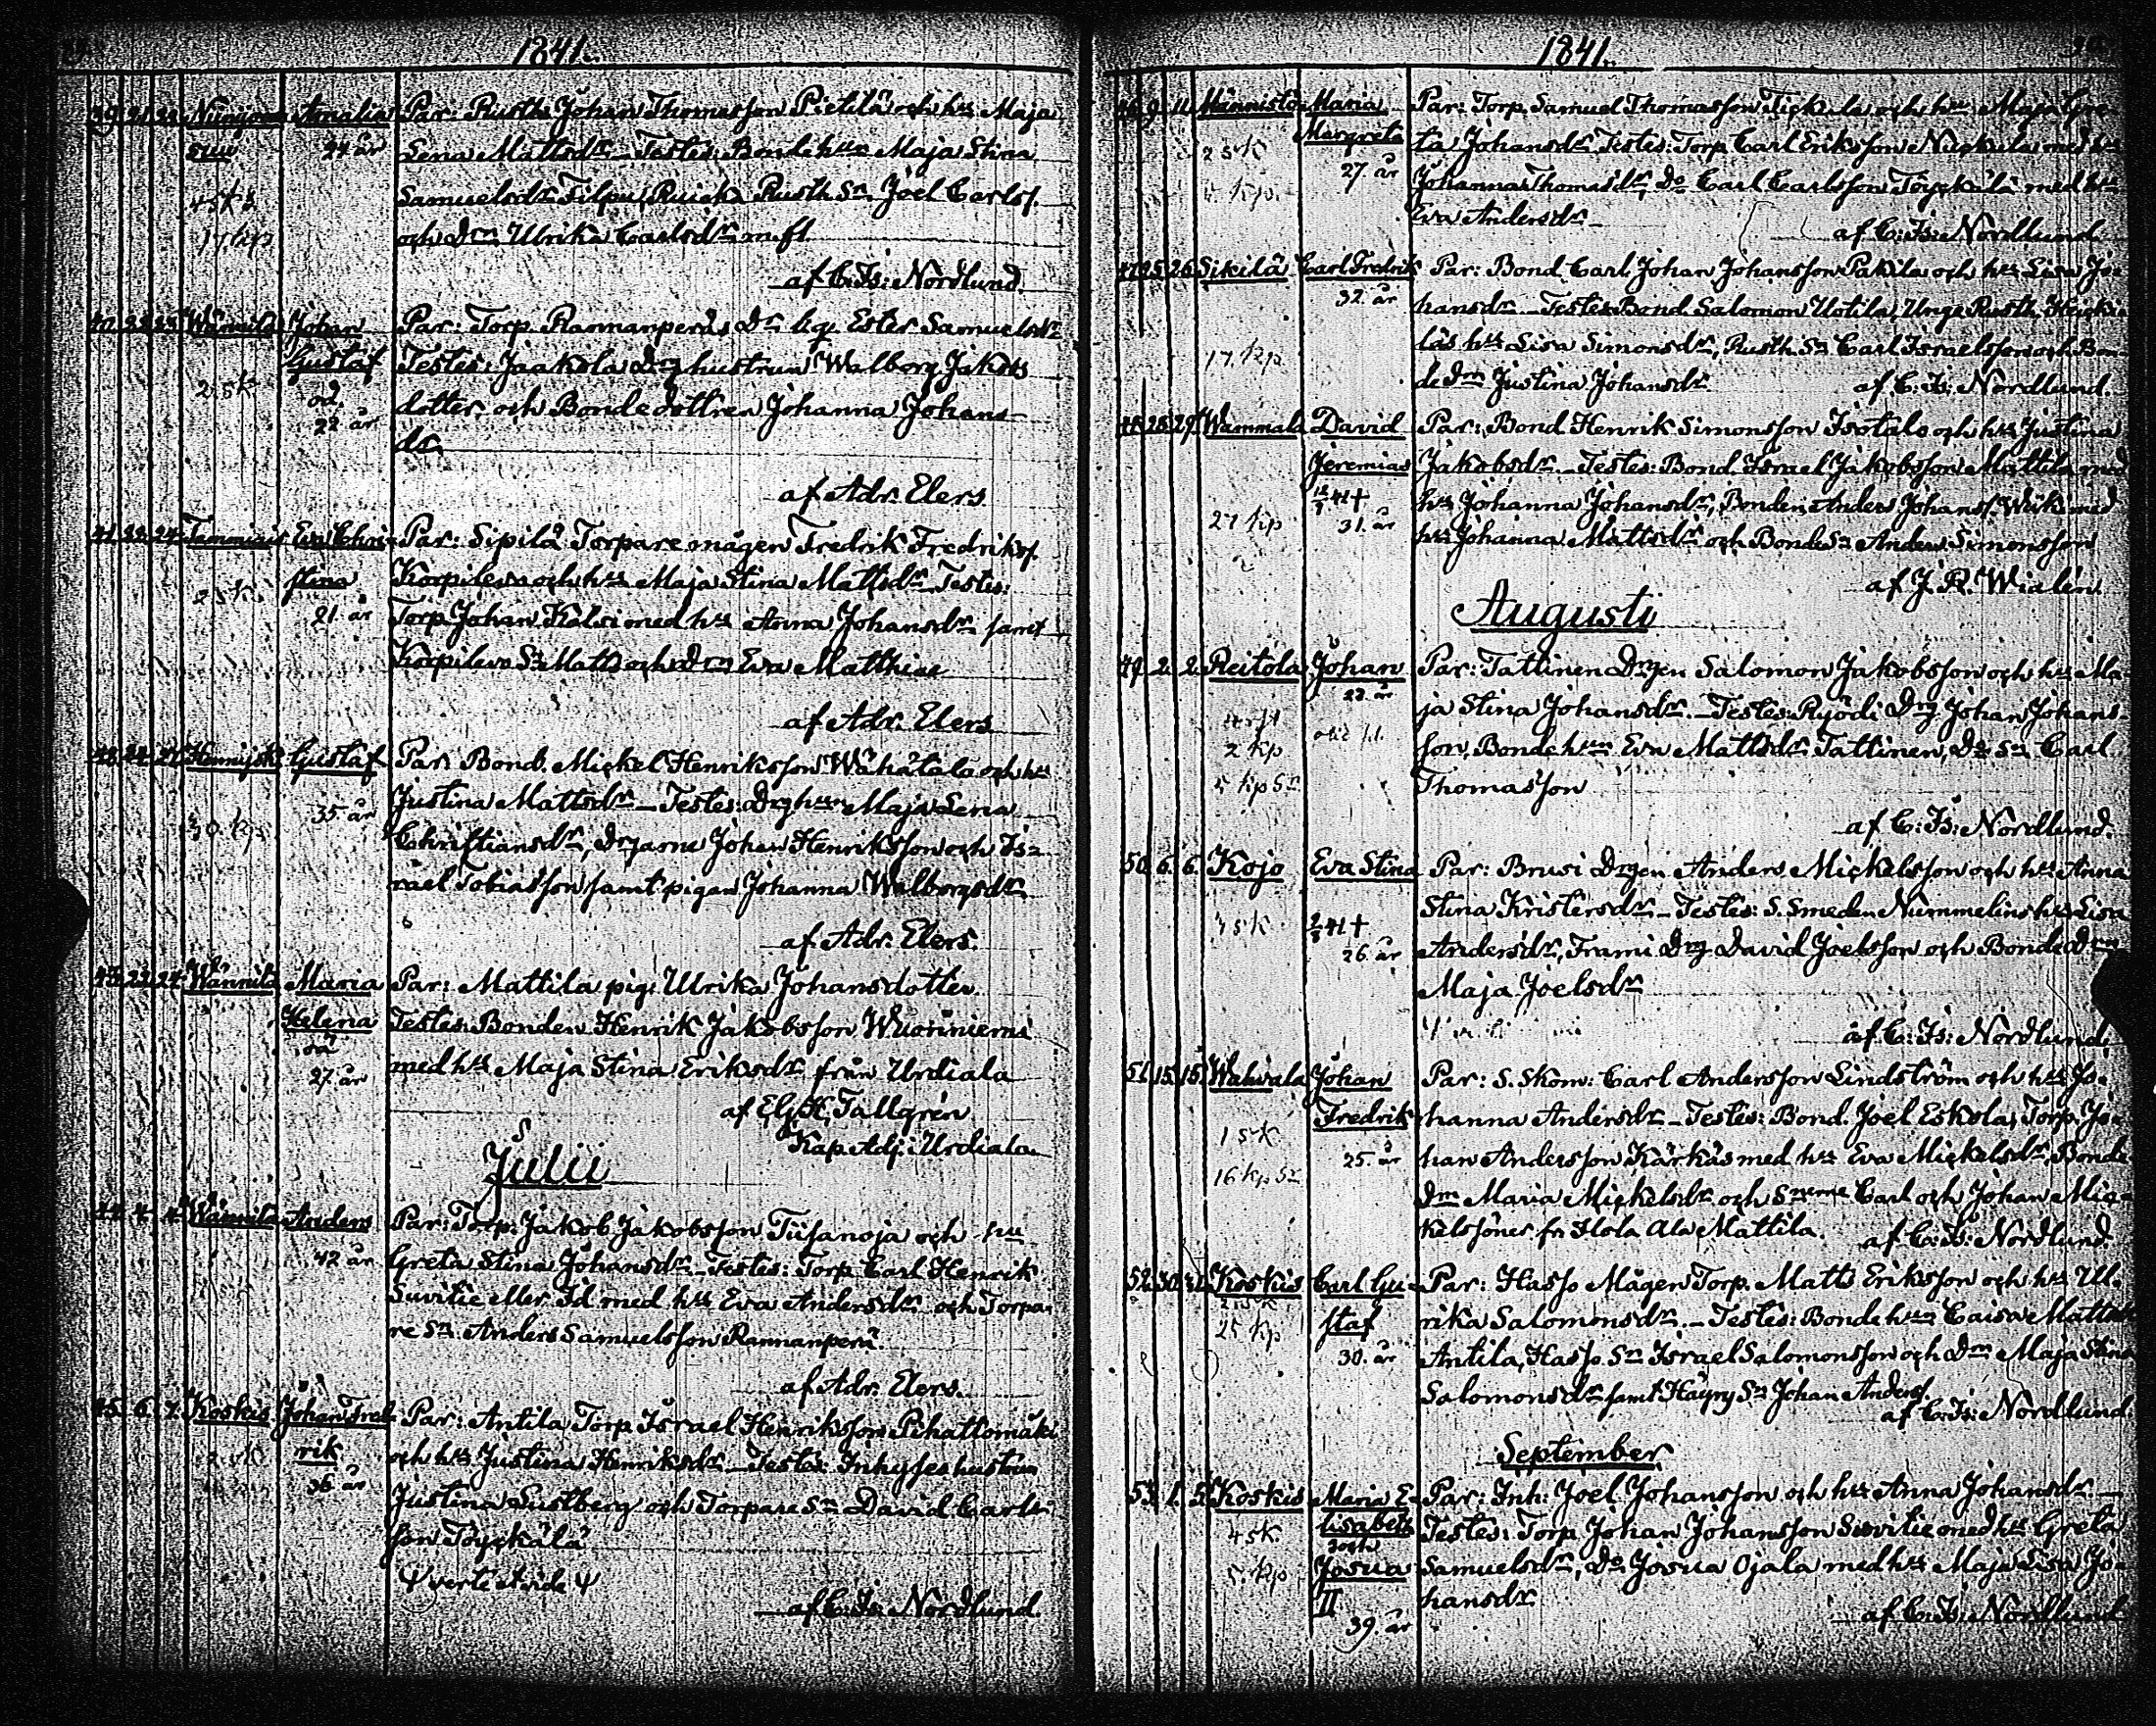 1841.
39. 21. 22. Nuuijoen Amalia Par: Rusth. Johan Thomasson Pietilä och hu Maja
suu 24 år Lena Mattsdr. Testes: Bondehun Maja Stina
Samuelsdr Filpu, Rusth. Sn Joel Carlss.
17 kp och Drn Ulrika Carlsdr m.fl.
af C: Js: Nordlund.
40. 22. 23. Wännilä Johan Par: Torp. Rannanperäs Dr lig. Ester Samuelsdr
Gustaf Testes: Jaakola Drg hustrun Walborg Jakobs
25 k. oä. dotter, och Bondedottren Johanna Johans
22 år dr.
af Adr. Elers.
41. 22. 24. Eva Chri- Par: Sipilä Torparemågen Fredrik Fredrikss.
25 k. stina Korpilewo och hu Maja Stina Mattsdr. Testes:
21. år Torp. Johan Kalsi med hu Anna Johansdr samt
Korpilewo Sn Matts och Drn Eva Matthiae
af Adr. Elers
42. 24. 27. Hennijoki Gustaf Par: Bond. Mickel Henriksson Wähätalo och hu
35. år Justina Mattsdr. Testes: Drg hun Maja Lena
Christiansdr, Drgarne Johan Henriksson och Is-
rael Tobiasson samt pigan Johanna Walborgsdr
af Adr. Elers.
43. 23. 24. Wännilä Maria Par: Mattila pig. Ulrika Johansdotter.
Helena Testes: Bonden Henrik Jakobsson Wuorinierni
oä med hu Maja Stina Eriksdr från Urdiala
27. år af E. G. H. Tallgrén
Kap. Adj. i Urdiala.
Julii
44. 4. 4. Wännilä Anders Par: Torp. Jakob Jakobsson Tiisanoja och hu
42 år Greta Stina Johansdr. Testes: Torp. Carl Henrik
Suvitie eller Id med hu Eva Andersdr och Torpa-
re Sn Anders Samuelsson Rannanperä.
af Adr. Elers.
45. 6. 7. Koskis Johan Fred- Par: Antila Torp. Israel Henriksson Pihattomäki
rik och hu Justina Henriksdr. Testes: Inhyses hustrun
36 år Justina Lustberg och Torpare Sn David Carls-
son Töyckälä
verte
af C: Js: Nordlund.
1841.
46. 9. 11. Männistö Maria Par: Torp. Samuel Thomasson Tickula och hu Maja Gre-
25 k Margreta ta Johansdr. Testes: Torp. Carl Eriksson Nuckula med hu
27. år Johanna Thomasdr, Do Carl Carlsson Töyckälä med hu
Eva Andersdr
af C: Js: Nordlund.
47. 25. 26. Sikilä Carl Fredrik Par: Bond. Carl Johan Johansson Pakila och hu Lisa Jo-
32. år hansdr. Testes: Bond. Salomon Uotila, Unga Rusth. Heicki-
17 kp läs hu Lisa Simonsdr, Rusth. Sn Carl Israelsson och Bon-
de Drn Justina Johansdr. af C: Js: Nordlund.
48. 28. 29. Wammala David Par: Bond. Henrik Simonsson Isotalo och hu Justina
Jeremias Jakobsdr. Testes: Bond. Israel Jakobsson Mattila med
41 † hu Johanna Johansdr, Bonden Anders Johanss. Wicki med
27 kp 31. år hu Johanna Mattsdr och Bonde Sn Anders Simonsson
af J. R. Wialén.
Augusti
49. 2. 2. Reitola Johan Par: Tattinen Drgen Salomon Jakobsson och hu Ma-
23. år ja Stina Johansdr. Testes: Ryödi Drg Johan Johans-
2 kp son, Bondehun Eva Mattsdr Tattinen, Do Sn Carl
5 kp Sr Thomasson
af C: Js: Nordlund.
50. 6. 6. Kojo Eva Stina Par: Brusi Drgen Anders Mickelsson och hu Anna
Stina Kristersdr. Testes: S. Smeden Nummelins hu Lisa
41 † Andersdr, Frami Drg David Joelsson och Bonde Drn
26. år Maja Joelsdr
af C: Js: Nordlund.
51. 15. 15. Wahvala Johan Par: S. Skom: Carl Andersson Lindström och hu Jo-
Fredrik hanna Andersdr. Testes: Bond. Joel Eskola, Torp. Jo-
15 k 25. år han Andersson Kärkäs med hu Eva Mickelsdr, Bonde
16 kp Sr Drn Maria Mickelsdr och Snerne Carl och Johan Mic-
kelssöner fr. Hola Ala Mattila. af C: Js: Nordlund.
52. 30. 31. Koskis Carl Gu- Par: Hasso Mågen Torp. Matts Eriksson och hu Ul-
25 kp staf rika Salomonsdr. Testes: Bondehun Caisa Mattsdr
30. år Antila, Hasso Sn Israel Salomonsson och Drn Maja Stina
Salomonsdr samt Häyry Sn Johan Anderss.
af C: Js: Nordlund.
September
53. 1. 5. Koskis Maria E- Par: Inh: Joel Johansson och hu Anna Johansdr
45 k. lisabeth Testes: Torp. Johan Johansson Suvitie med hu Greta
och
5. kp Josua Samuelsdr, Do Josua Ojala med hu Maja Lisa Jo-
II hansdr.
39. år af C: Js: Nordlund